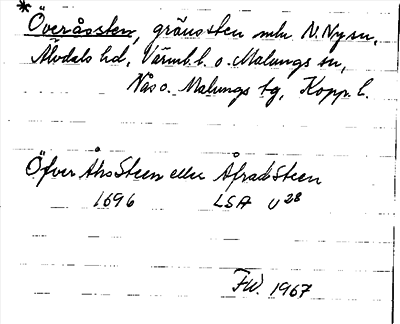 * Överåssten, gränssten mln N. Ny sn,
Älvdals hd, Värml. l. o. Malungs sn,
Nås o. Malungs tg, Kopp. l.
Öfver Åhs Steen eller Åfrads Steen
1696 LSA U28
FW. 1967